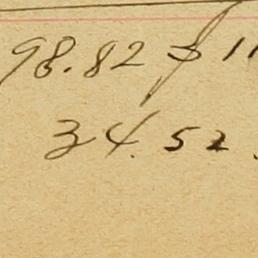 98.82 $ 11
34.52.